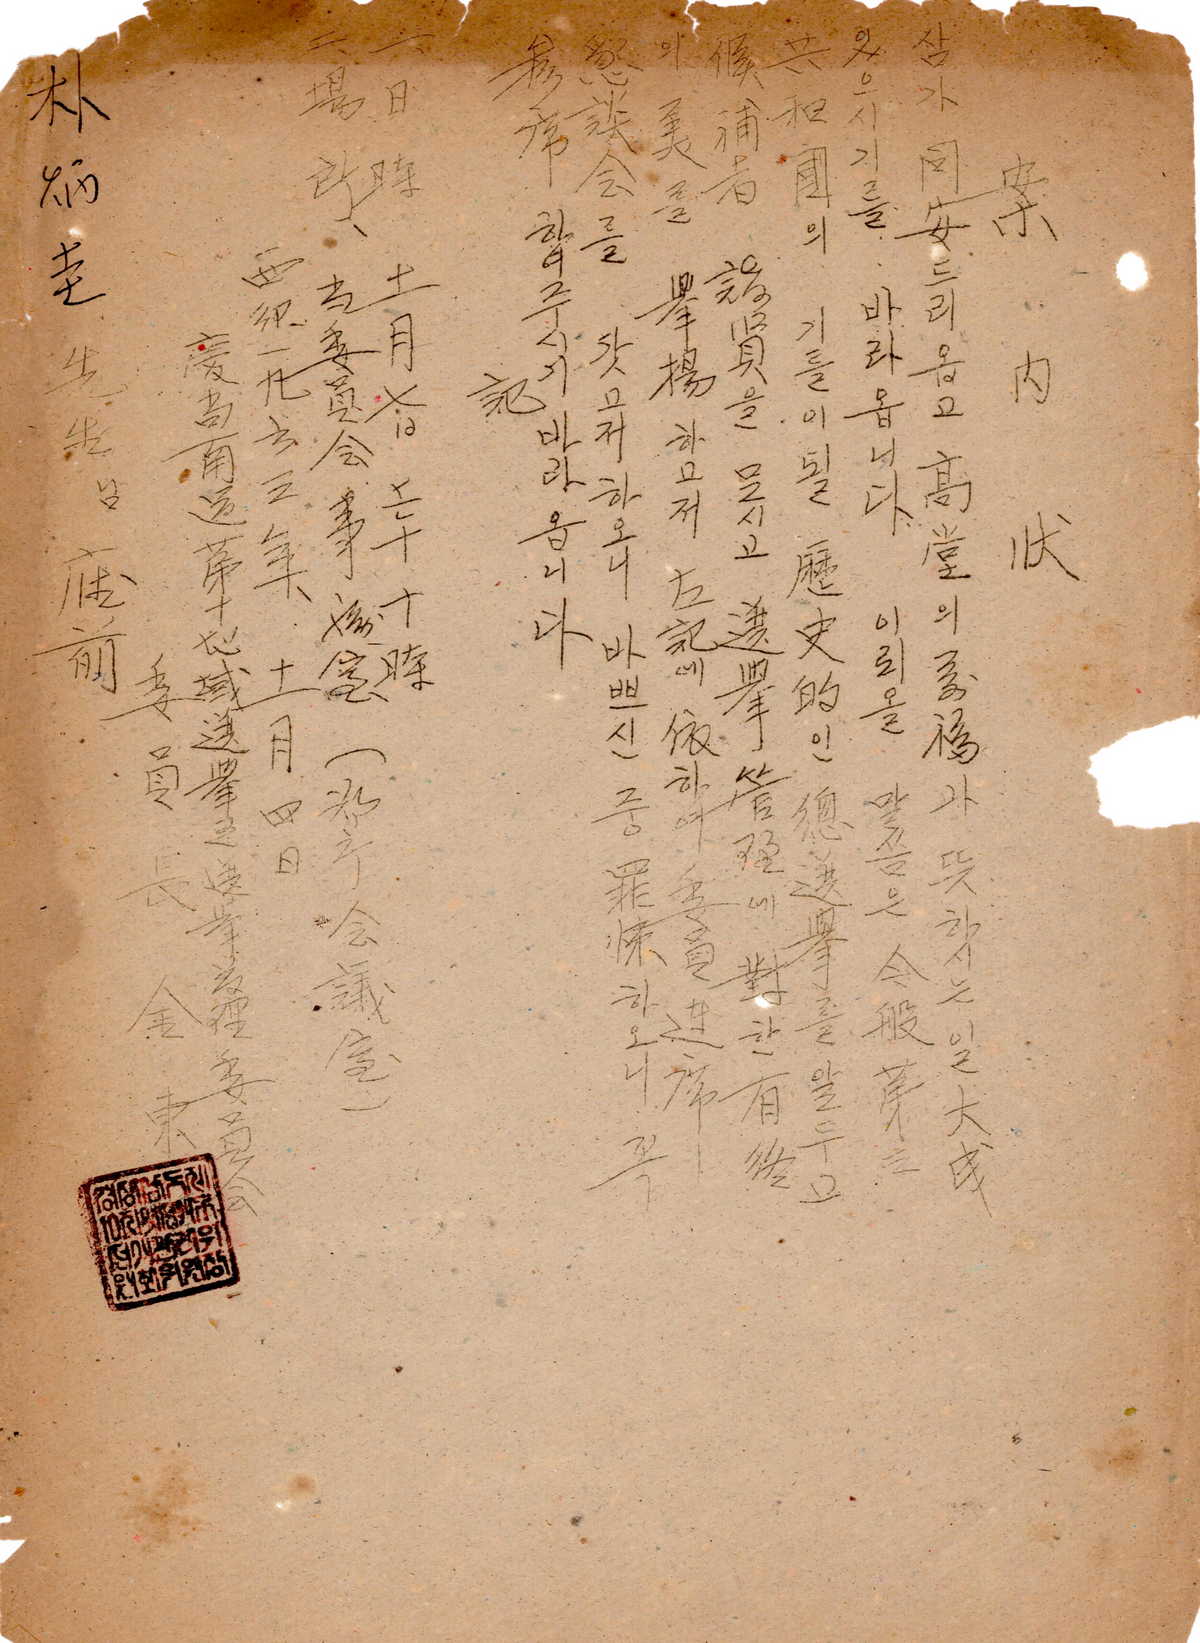 案內狀
삼가 問安드리옵고 高堂의 萬福가 뜻하시는 일 大成
있으시기를 바라옵니다 이뢰올 말씀은 今般 第三
共和國의 기틀이 될 歷史的인 總選擧를 앞두고
候補者 諸賢을 모시고 選擧管理에 對한 有終
의 美를 擧揚하고저 左記에 依하여 委員 連席
懇談会를 갖고저 하오니 바쁘신 중 罪悚하오니 꼭
参席하여 주시기 바라옵니다
記
一 日時 十一月 七日 十時
二 場所 当委員会 事務室 (会議室)
西紀一九六三年 十一月 四日
慶尚南道第十七地域選擧区選擧管理委員会
委員長 金東
朴炳圭 先生 座前